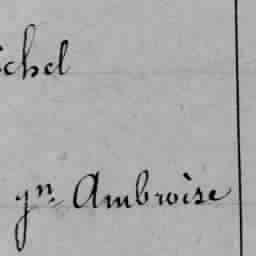 ichel
jn. Ambroise